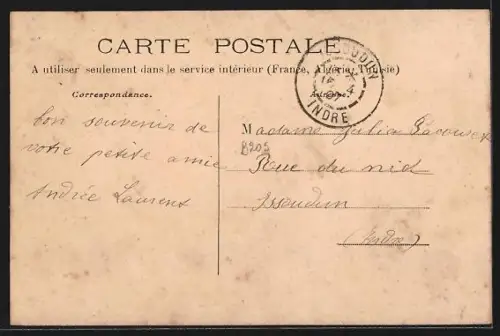 CARTE POSTALE
A utiliser seulement dans le service intérieur (France, Algérie, Tunisie)
ISSOUDUN
INDRE
Correspondance.
Adresse.
bon souvenir de
votre petite amie
Andrée Laurent
Madame Julia
8205
Rue du nid
Issoudun
(Indre)